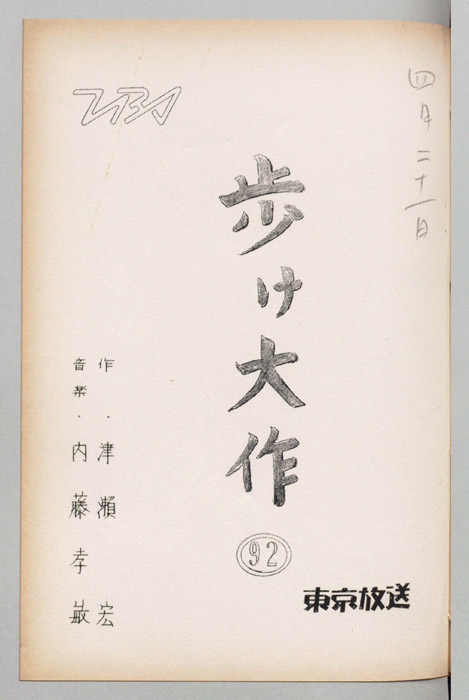 四月二十一日
TBS
歩け大作
92
東京放送
作・津瀬宏
音楽・内藤孝敏